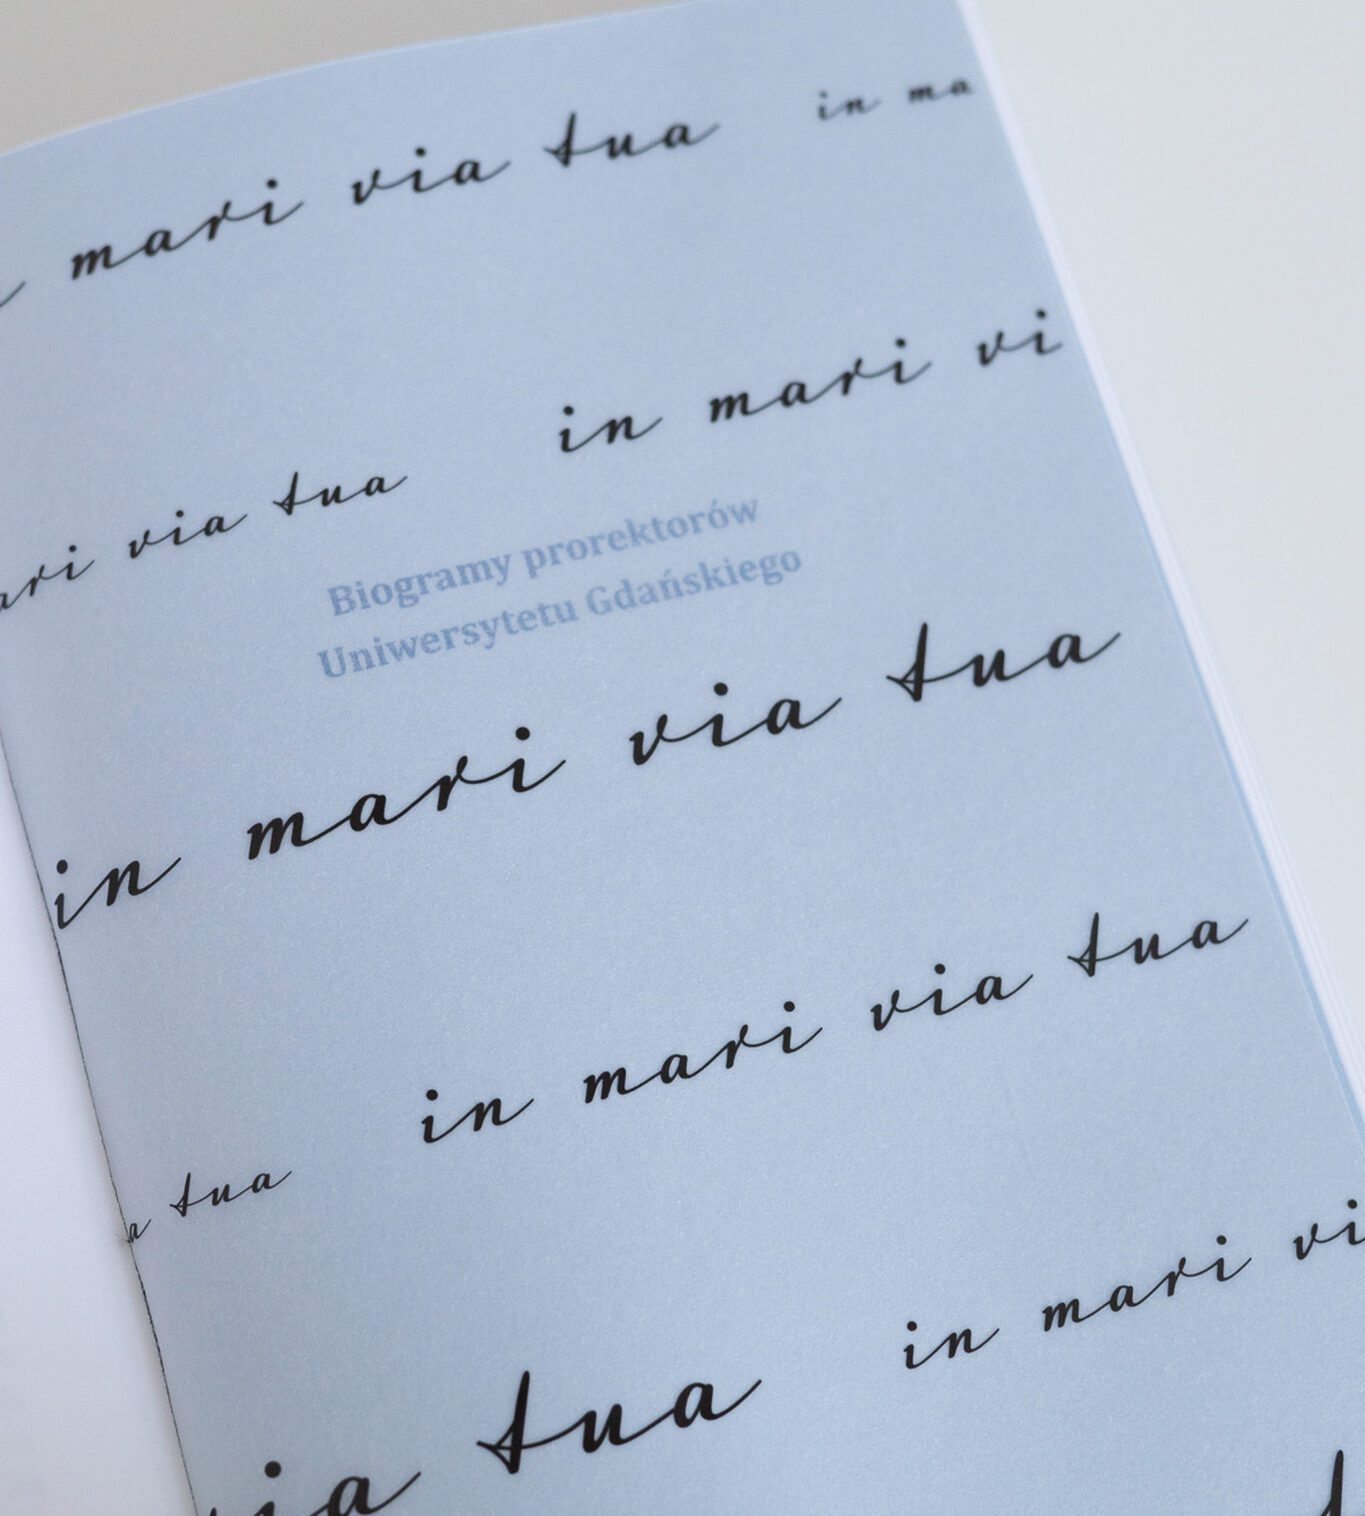 mari via tua in ma
ari via tua in mari vi
Biogramy prorektorów
Uniwersytetu Gdańskiego
in mari via tua
a tua in mari via tua
ia tua in mari vi